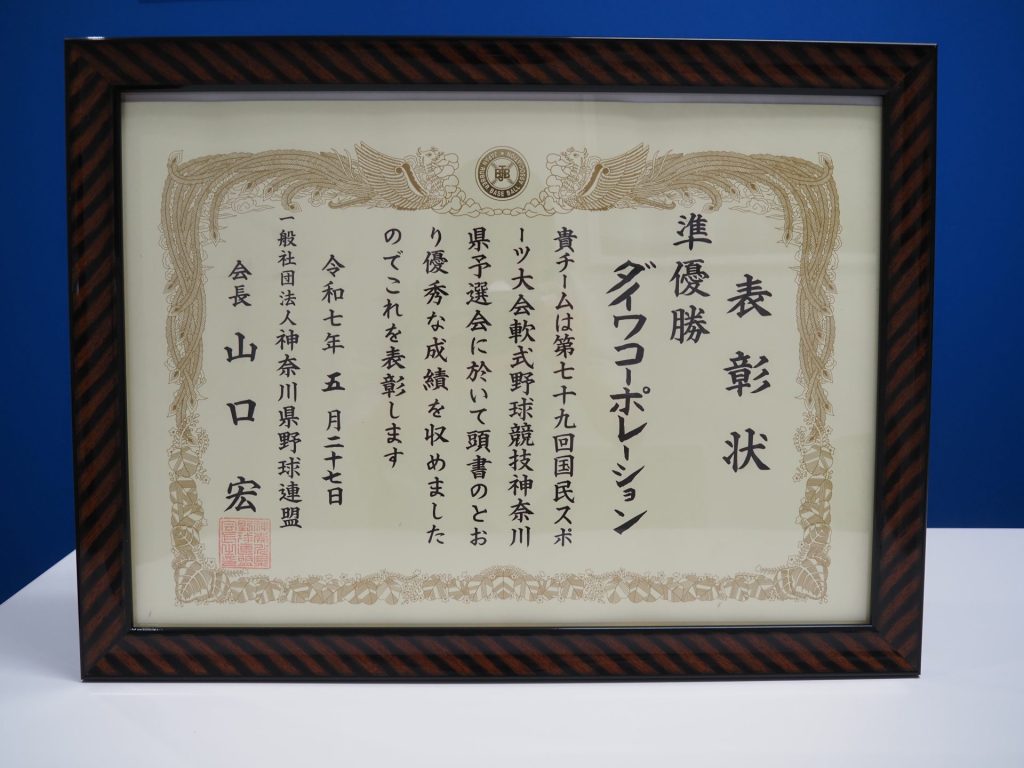 表彰状
準優勝
ダイワコーポレーション
貴チームは第七十九回国民スポ
ーツ大会軟式野球競技神奈川
県予選会に於いて頭書のとお
り優秀な成績を収めました
のでこれを表彰します
令和七年五月二十七日
一般社団法人神奈川県野球連盟
会長 山口宏